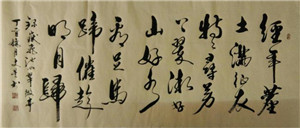 經年塵
土滿征衣
特特尋芳
上翠微好
山好水
看不足馬
蹄催趁
明月歸
岳飛池州翠微亭
丁酉